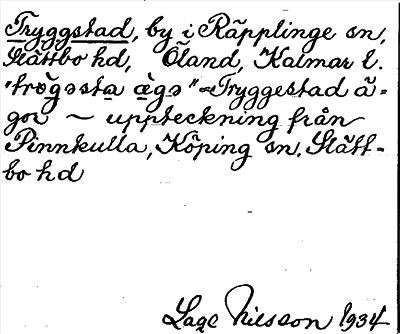 Tryggstad, by i Räpplinge sn,
Slättbo hd, Öland, Kalmar l.
"trögəsta ägə" ~ Tryggestad ä-
gor ~ uppteckning från
Pinnkulla, Köping sn. Slätt-
bo hd
Lage Nilsson 1934